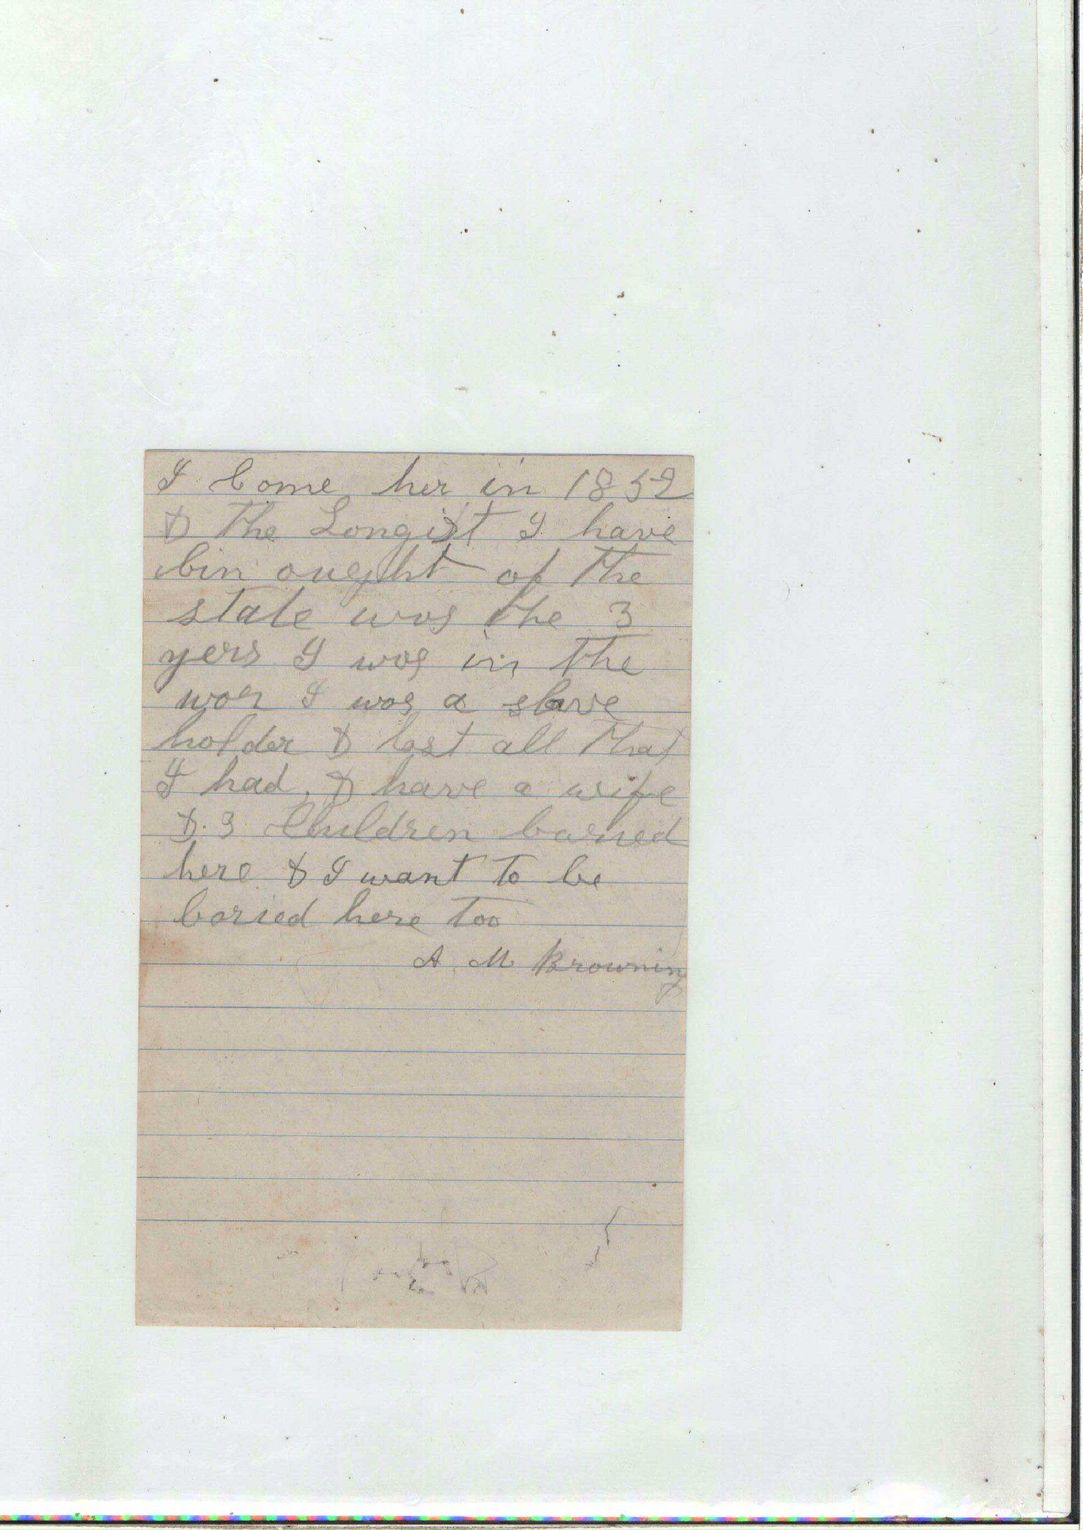 I Come her in 1852
& The Longist I have
bin ought of the
state was the 3
yers I was in the
war I was a slave
holder & lost all that
I had, & have a wife
& 3 Children buried
here & I want to be
boried here too
A. M. Browning